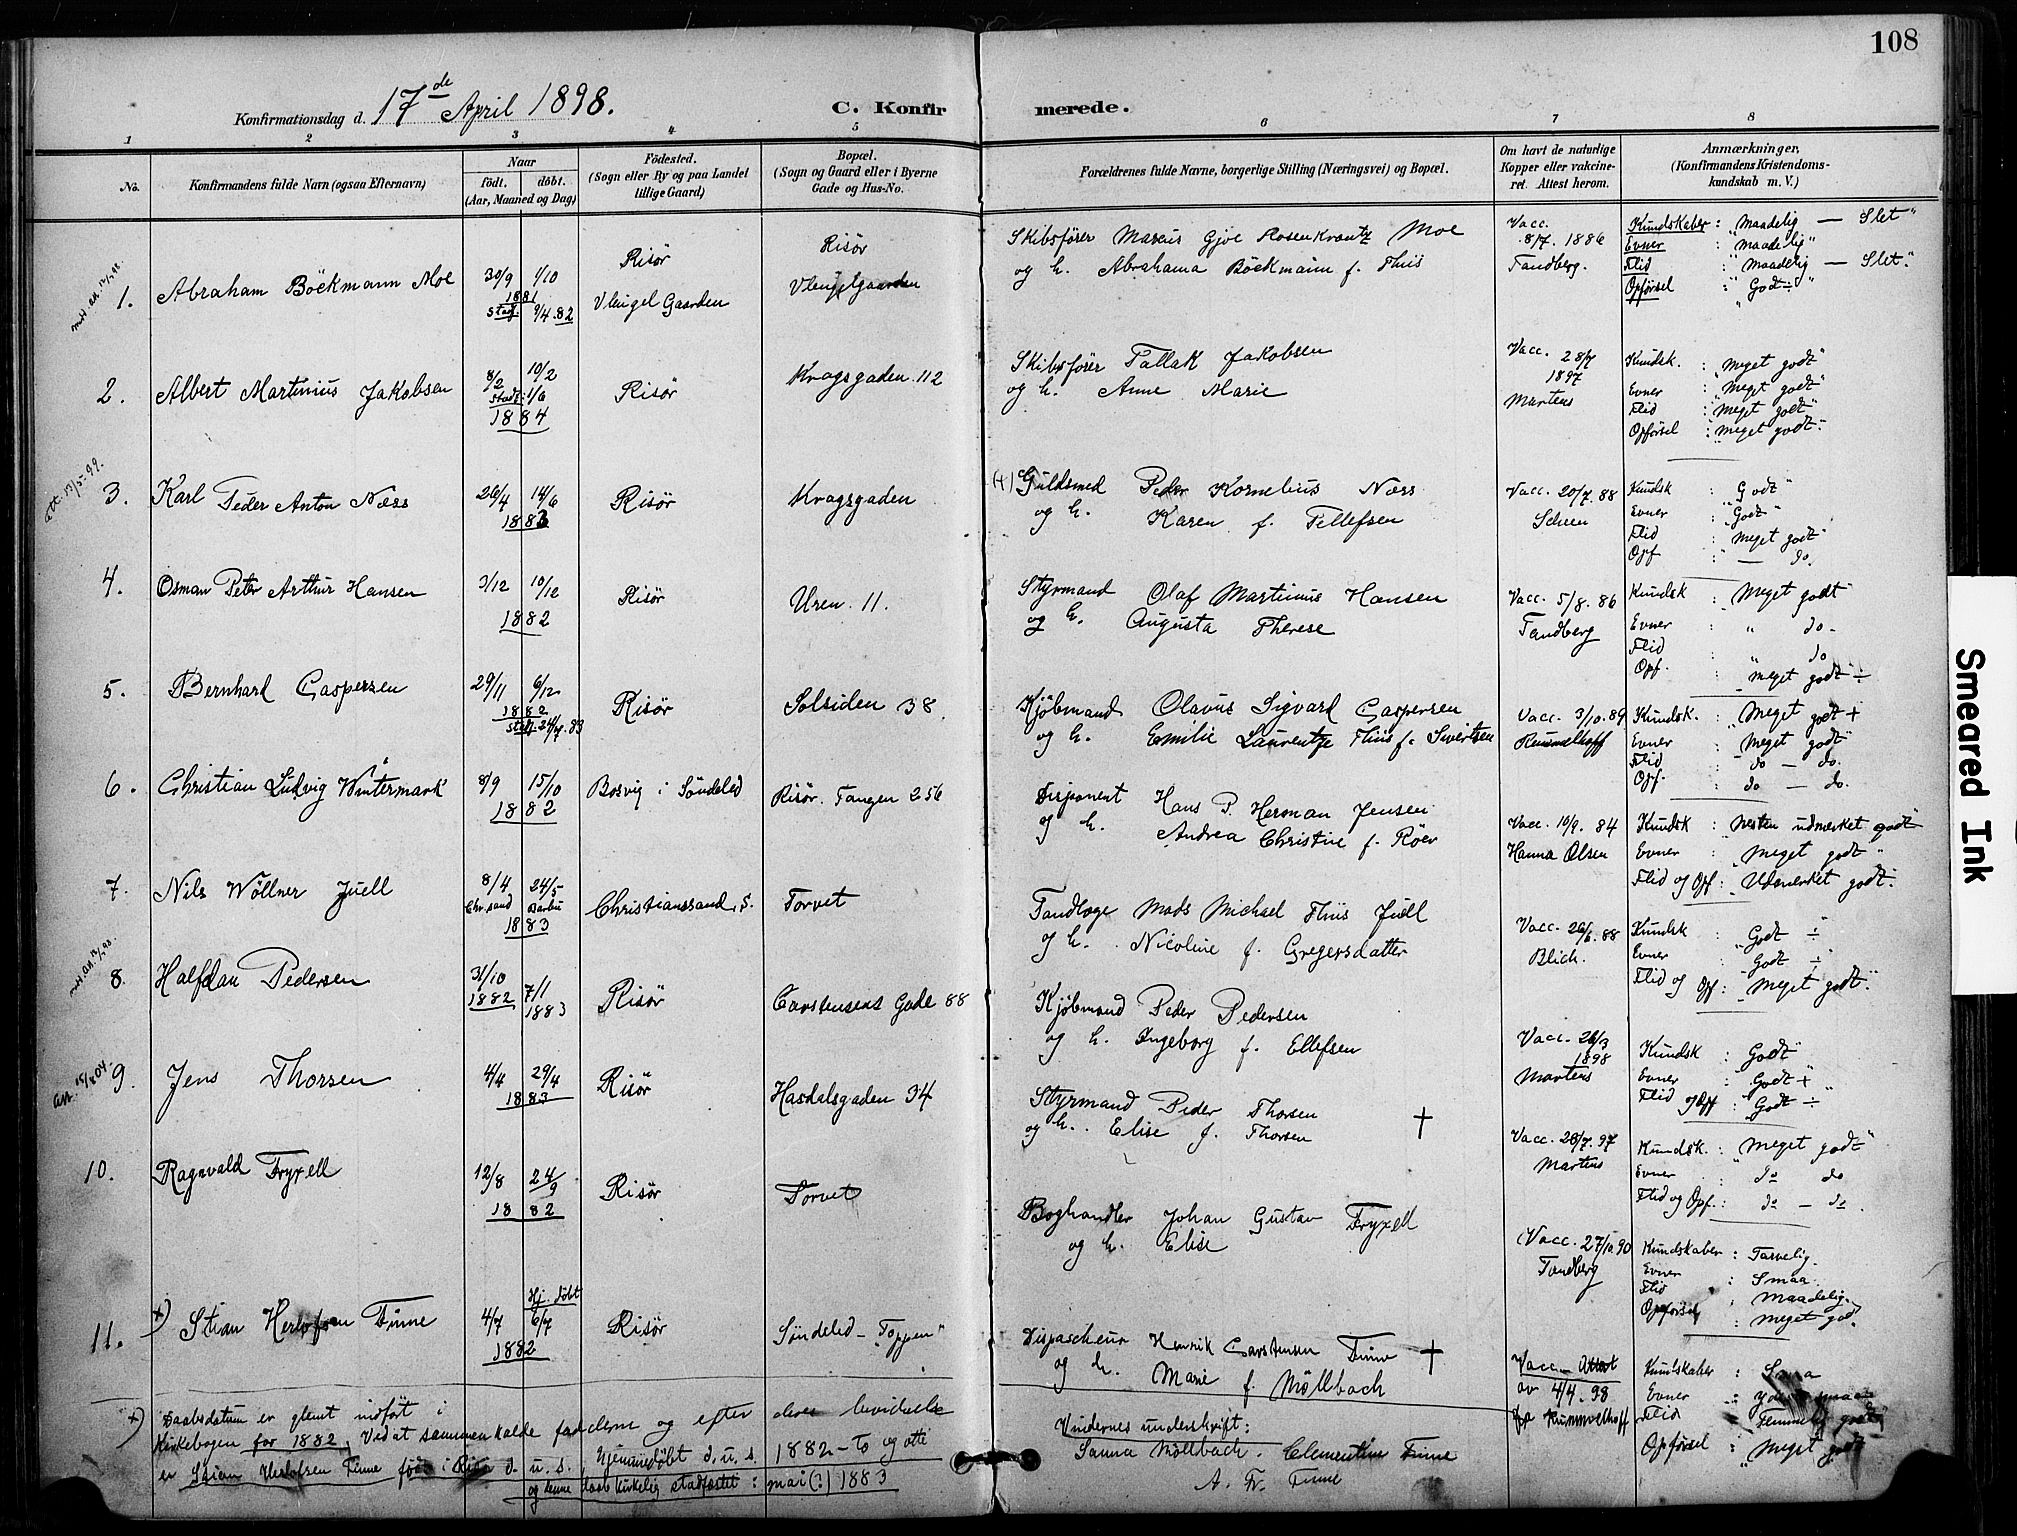 108
Konfirmationsdag d. 17de April 1898.
C. Konfirmerede.
1 2 3 4 5 6 7 8
No.
Konfirmandens fulde Navn (ogsaa Efternavn)
Naar
født. døbt.
(Aar, Maaned og Dag)
Fødested.
(Sogn eller By og paa Landet
tillige Gaard)
Bopæl.
(Sogn og Gaard eller i Byerne
Gade og Hus-No.
Forældrenes fulde Navne, borgerlige Stilling (Næringsvei) og Bopæl.
Om havt de naturlige
Kopper eller vakcine-
ret. Attest herom.
Anmærkninger,
(Konfirmandens Kristendoms-
kundskab m. V.)
1. Abraham Böckmann Moe
30/9 1/10
1881
Stadf. 9/4.82
Risör
Vlengel Gaarden
Risör
Vlengelgaarden
Skibsförer Marcus Gjoe Rosenkrantz Moe
og h. Abrahama Böckmann f. Thiis
Vacc.
8/7. 1886
Tandberg.
Kundskaber : "Maadelig — Slet"
Evner : "maadelig"
Flid : "maadelig — Slet."
Opførsel : "Godt ÷"
2. Albert Martinius Jakobsen
8/2 10/2
Stadf. 1/6
1884
Risör
Kragsgaden. 112
Skibsförer Tallak Jakobsen
og h. Anne Marie
Vacc. 28/7
1897
Martens
Kundsk. : "Meget godt"
Evner : "Meget godt"
Flid : "Meget godt"
Opførsel : "Meget godt÷
att. 13/5-99.
3. Karl Peder Anton Næss
26/4 14/6
1883
Risör
Kragsgaden
(+) Guldsmed Peder Kornelius Næss
og h. Karen f. Tellefsen
Vacc. 20/7.88
Scheen
Kundsk : "Godt"
Evner : "Godt"
Flid : "Meget godt"
Opf : " — do.
4. Osman Peter Arthur Hansen
3/12 10/12
1882
Risör
Uren. 11.
Styrmand Olaf Martinius Hansen
og h. Augusta Therese
Vacc. 5/8. 86
Tandberg
Kundsk : "Meget godt"
Evner : " do.
Flid : " do
Opf. : "Meget godt÷
5. Bernhard Caspersen
29/11 6/12
1882
Stadf. 24/7.83
Risör
Solsiden 38.
Kjöbmand Olavus Sigvard Caspersen
og h. Emilie Laurentze Thiis f. Sivertsen
Vacc. 3/10.89
Rummelhoff
Kundsk. : "Meget godt+
Evner : "Meget godt"
Flid : do — do.
Opf. : do — do.
6. Christian Ludvig Wintermark
8/9 15/10
1882
Bosvig i Söndeled
Risör. Tangen 256
Disponent Hans P. Herman Jensen
og h. Andrea Christine f. Röer
Vacc. 10/9. 84
Hanna Olsen
Kundsk : Nesten udmerket godt
Evner : "Meget godt"
Flid og Opf : Udmerket godt.
7. Nils Wöllner Juell
8/4 24/5
Chr.sand Barbu
1883
Christianssand, S.
Torvet
Tandlæge Mads Michael Thiis Juell
og h. Nicoline f. Gregersdatter
Vacc. 26/6.88
Blich.
Kundsk : "Godt ÷"
Evner : "Godt ÷"
Flid og Opf : "Meget godt."
8. Halfdan Pedersen
31/10
1882 7/1
1883
Risör
Carstensens Gade 88
Kjöbmand Peder Pedersen
og h. Ingeborg f. Ellefsen
Vacc. 26/3
1898
Martens
Kundsk : "Godt"
Evner : "Godt +"
Flid og Opf : "Godt ÷
9. Jens Thorsen
4/4 29/4
1883
Risör
Hasdalsgaden 34
Styrmand Peder Thorsen
og h. Elise f. Thorsen †
Vacc. 28/7.97
Martens
Kundsk. : "Meget godt"
Evner : do do
Flid og Opf. : do — do.
10. Ragnvald Fryxell
12/8 24/9
1882
Risör
Torvet
Boghandler Johan Gustav Fryxell
og h. Elise
Vacc. 27/10.90
Tandberg
Kundskaber : Tarvelig.
Evner : Smaa.
Flid : Maadelig.
Opførsel : Meget god.
11. x) Stian Herlofsen Finne
4/7 Hj. døbt
6/7
1882
Risör
Söndeled - "Toppen"
Dispascheur Henrik Carstensen Finne †
og h. Marie f. Möllbach
Vacc. Attest
av 4/4. 98
Rummelhoff
Kundskaber : Smaa
Evner :
Flid : Temmelig god
Opførsel : "Meget godt
x) Daabsdatum er glemt indført i
Kirkebogen for 1882. Ved at sammenkalde fadderne og efter deres bevidnelse
er Stian Herlofsen Finne født i Risör d. u. s., hjemmedöbt d. u. s. 1882 - to og otti
og denne daab kirkelig stadfæstet i mai (?) 1883
Vidernes underskrift:
Sanna Möllbach. Clementine Finne
A. Fr. Finne